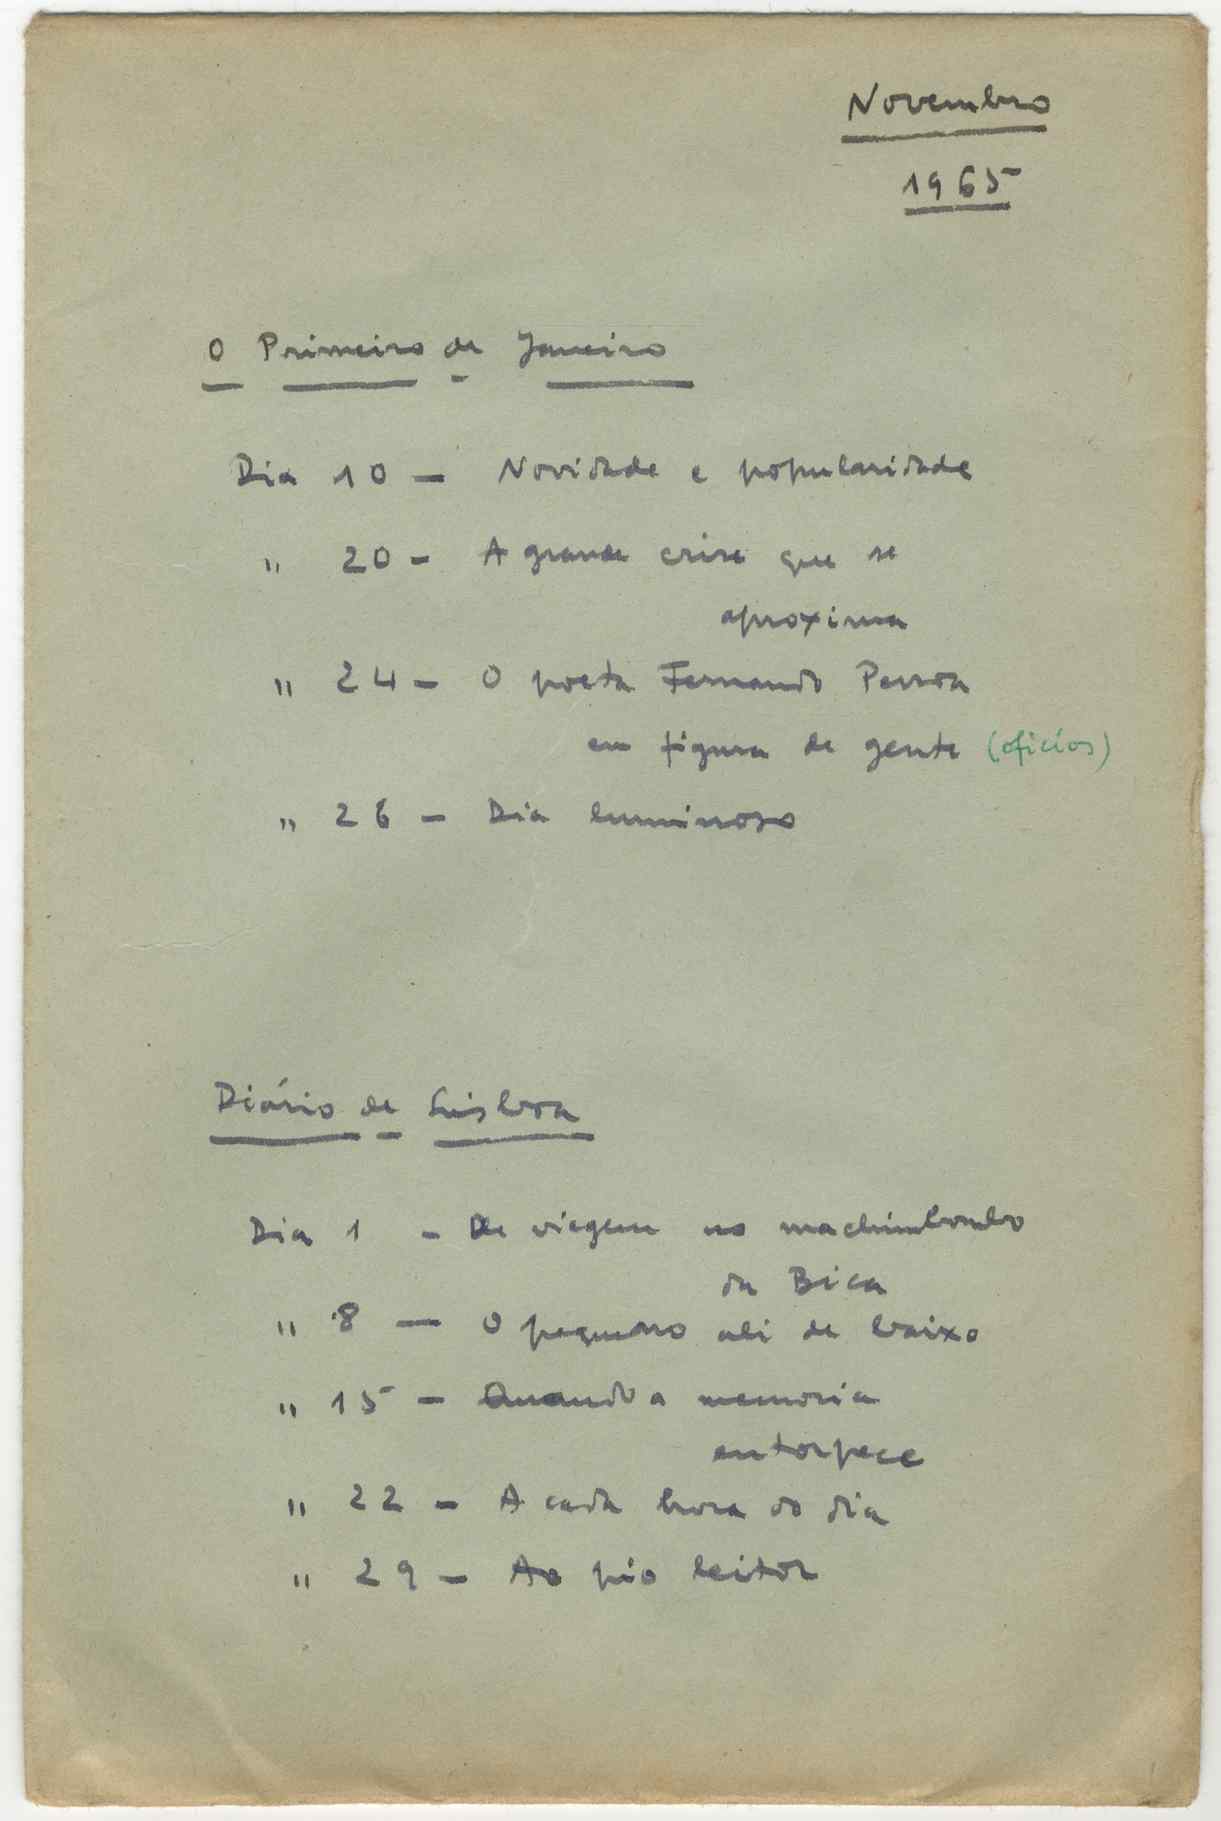 Novembro
1965
O Primeiro de Janeiro
Dia 10 - Novidade e popularidade
" 20 - A grande crise que se
aproxima
" 24 - O poeta Fernando Pessoa
em figura de gente (ofícios)
" 26 - Dia luminoso
Diário de Lisboa
Dia 1 - De viagem no machimbombo
da Bica
" 8 - O pequeno ali de baixo
" 15 - Quando a memoria
entorpece
" 22 - A cada hora do dia
" 29 - Ao pio leitor